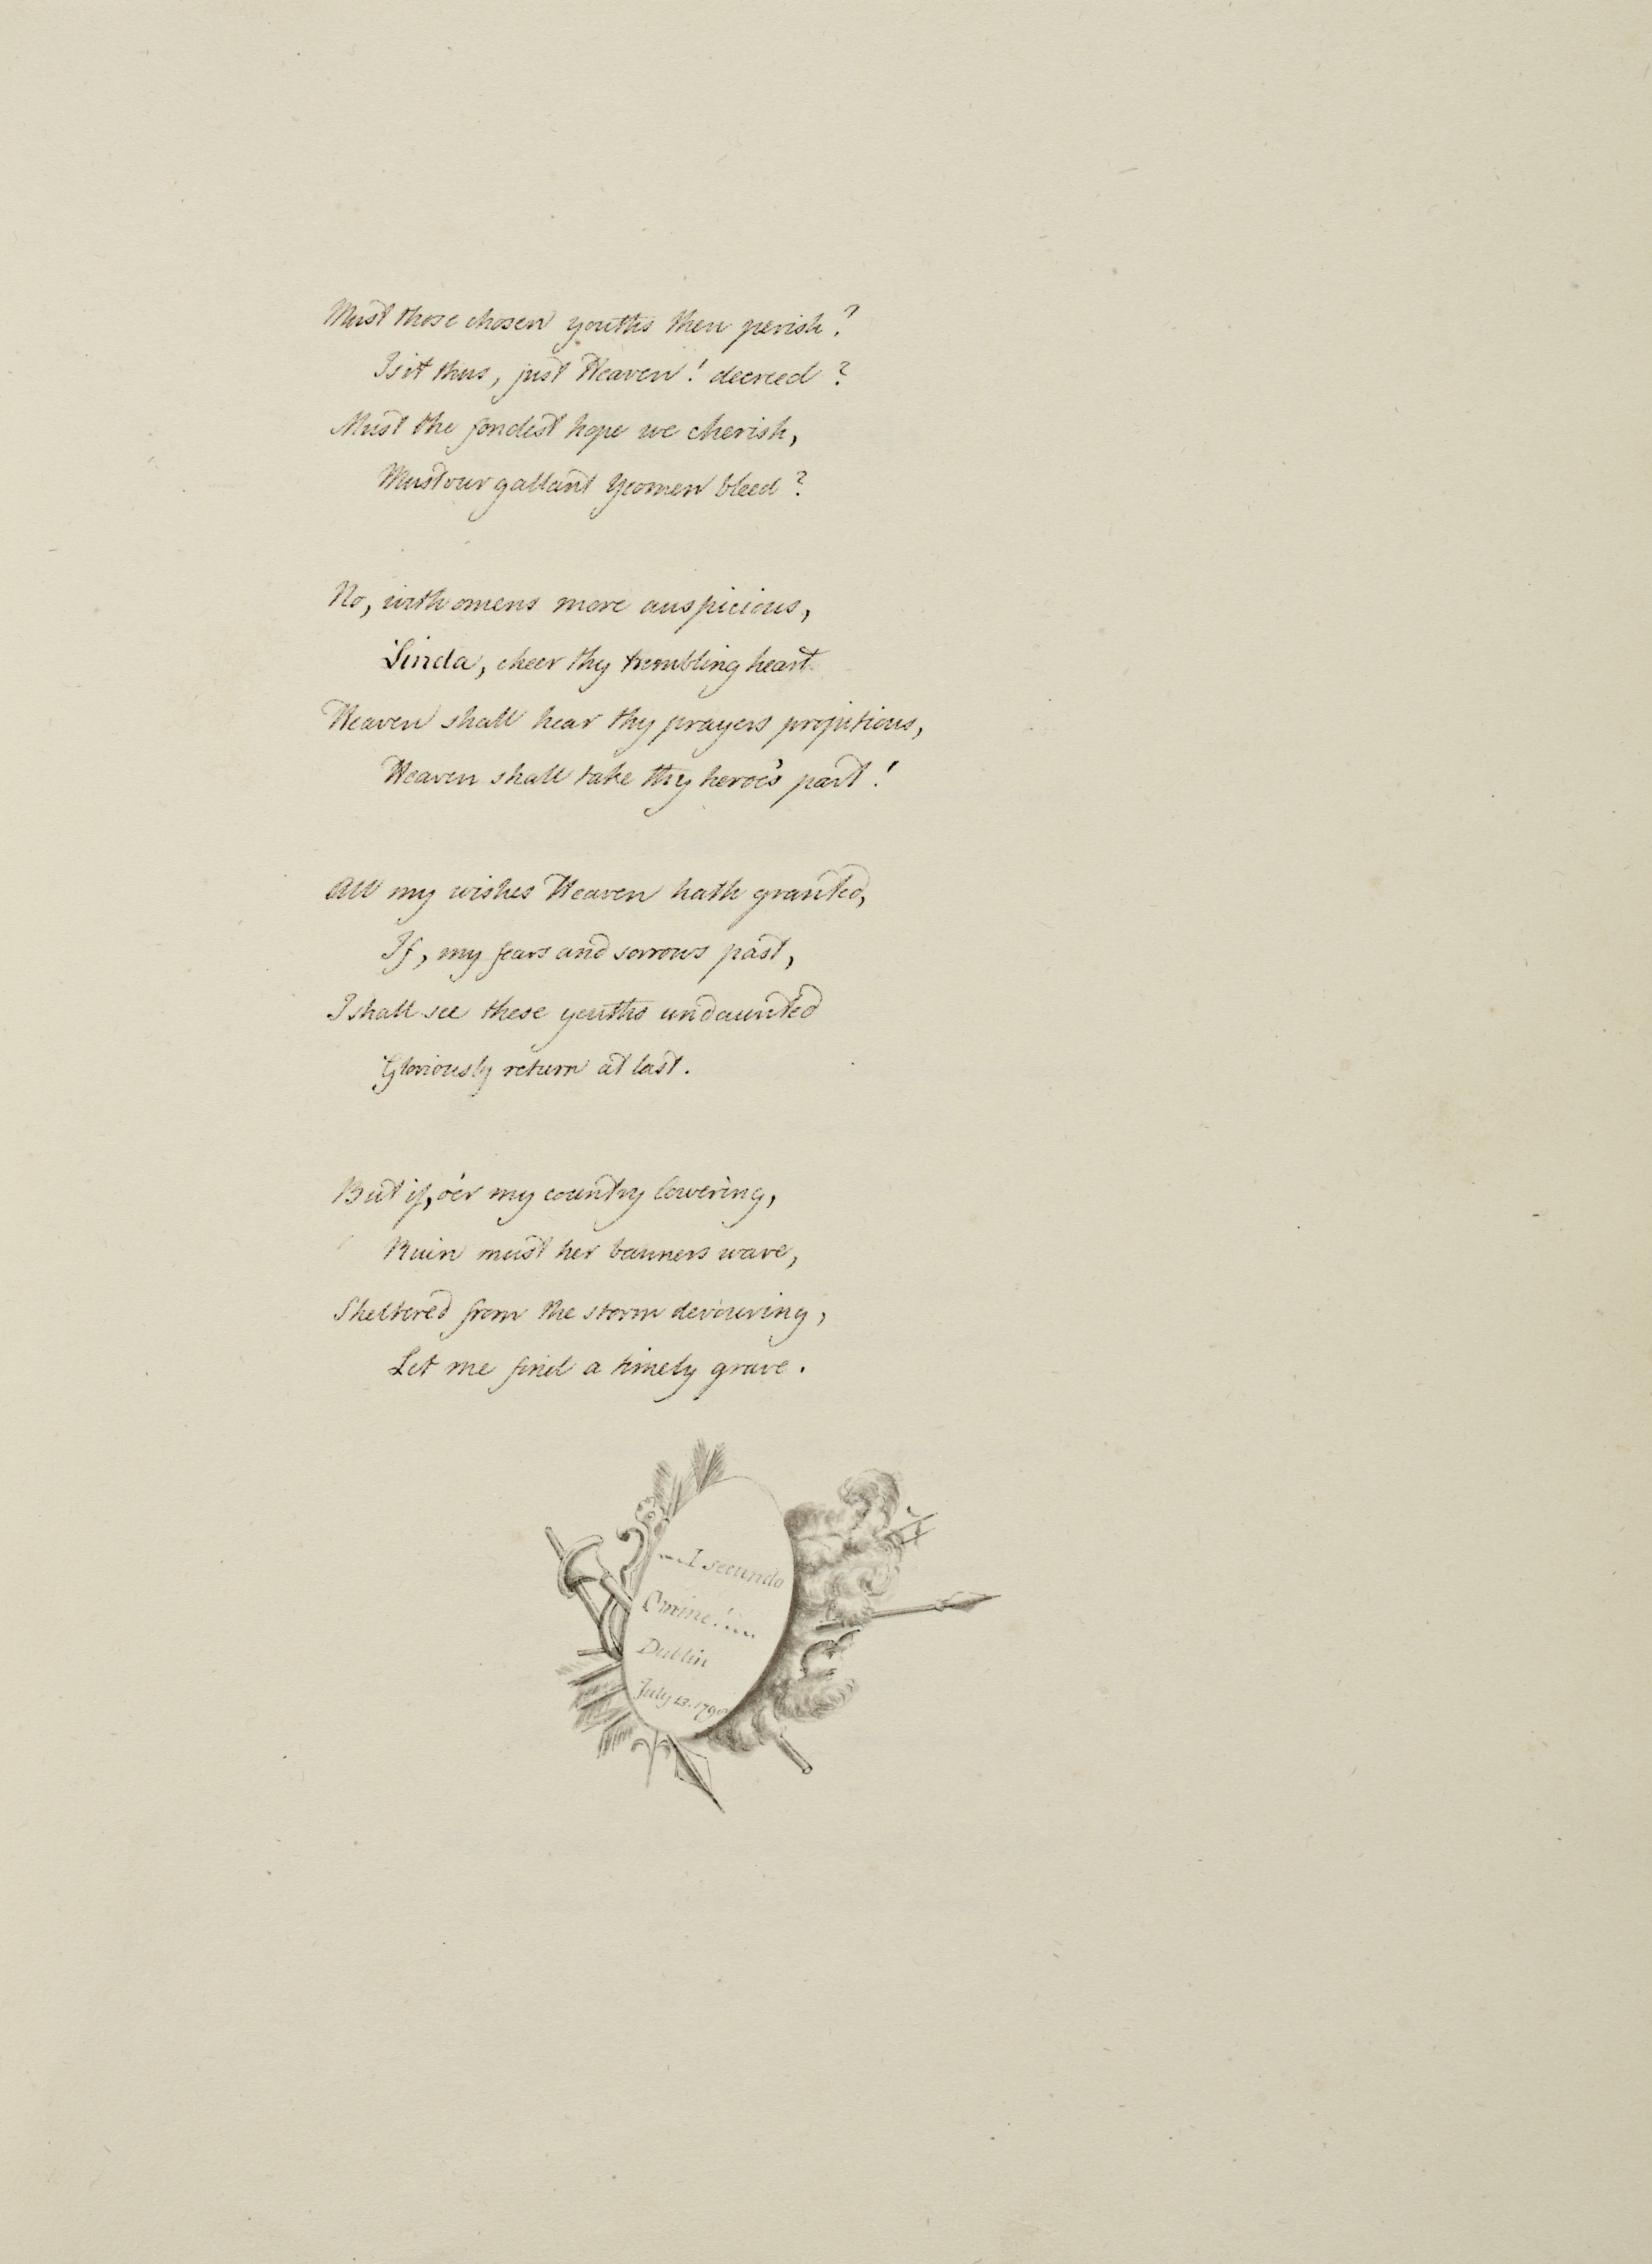 Must those chosen youths then perish?
Is it thus, just Heaven! decreed?
Must the fondest hope we cherish,
Must our gallant Yeomen bleed?
No, with omens more auspicious,
Linda, cheer thy trembling heart
Heaven shall hear thy prayers propitious,
Heaven shall take thy heroe's part!
All my wishes Heaven hath granted,
If, my fears and sorrows past,
I shall see these youths undaunted
Gloriously return at last.
But if, o'er my country lowering,
Ruin must her banners wave,
Sheltered from the storm devouring,
Let me find a timely grave.
....I secundo
Omine!....
Dublin
July 13.